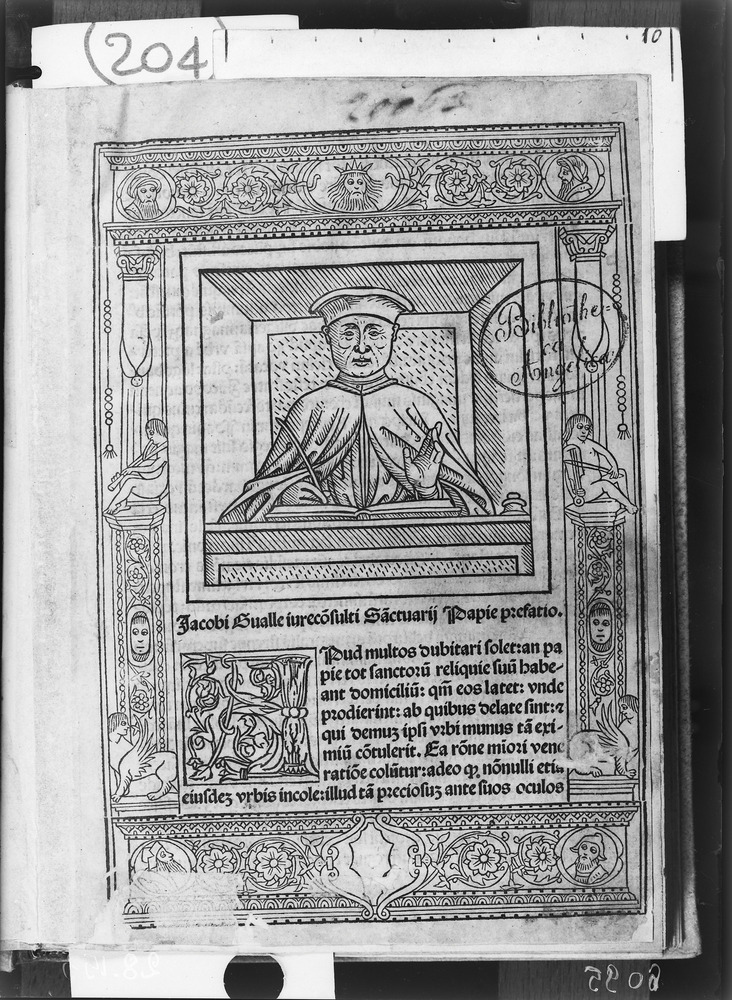 204
10
Bibliothe-
ca
Angelica
Jacobi Gualle iurecõsulti Sãctuarij Papie prefatio.
APud multos dubitari solet: an pa
pie tot sanctorũ reliquie suũ habe-
ant domiciliũ: qm̃ eos latet: vnde
prodierint: ab quibus delate sint: ⁊
qui demuʒ ipsi vrbi munus tã exi-
miũ cõtulerit. Ea rõne miori vene
ratiõe colũtur: adeo ꝙ nõnulli etiã
eiusdeʒ vrbis incole: illud tã preciosuʒ ante suos oculos
6095